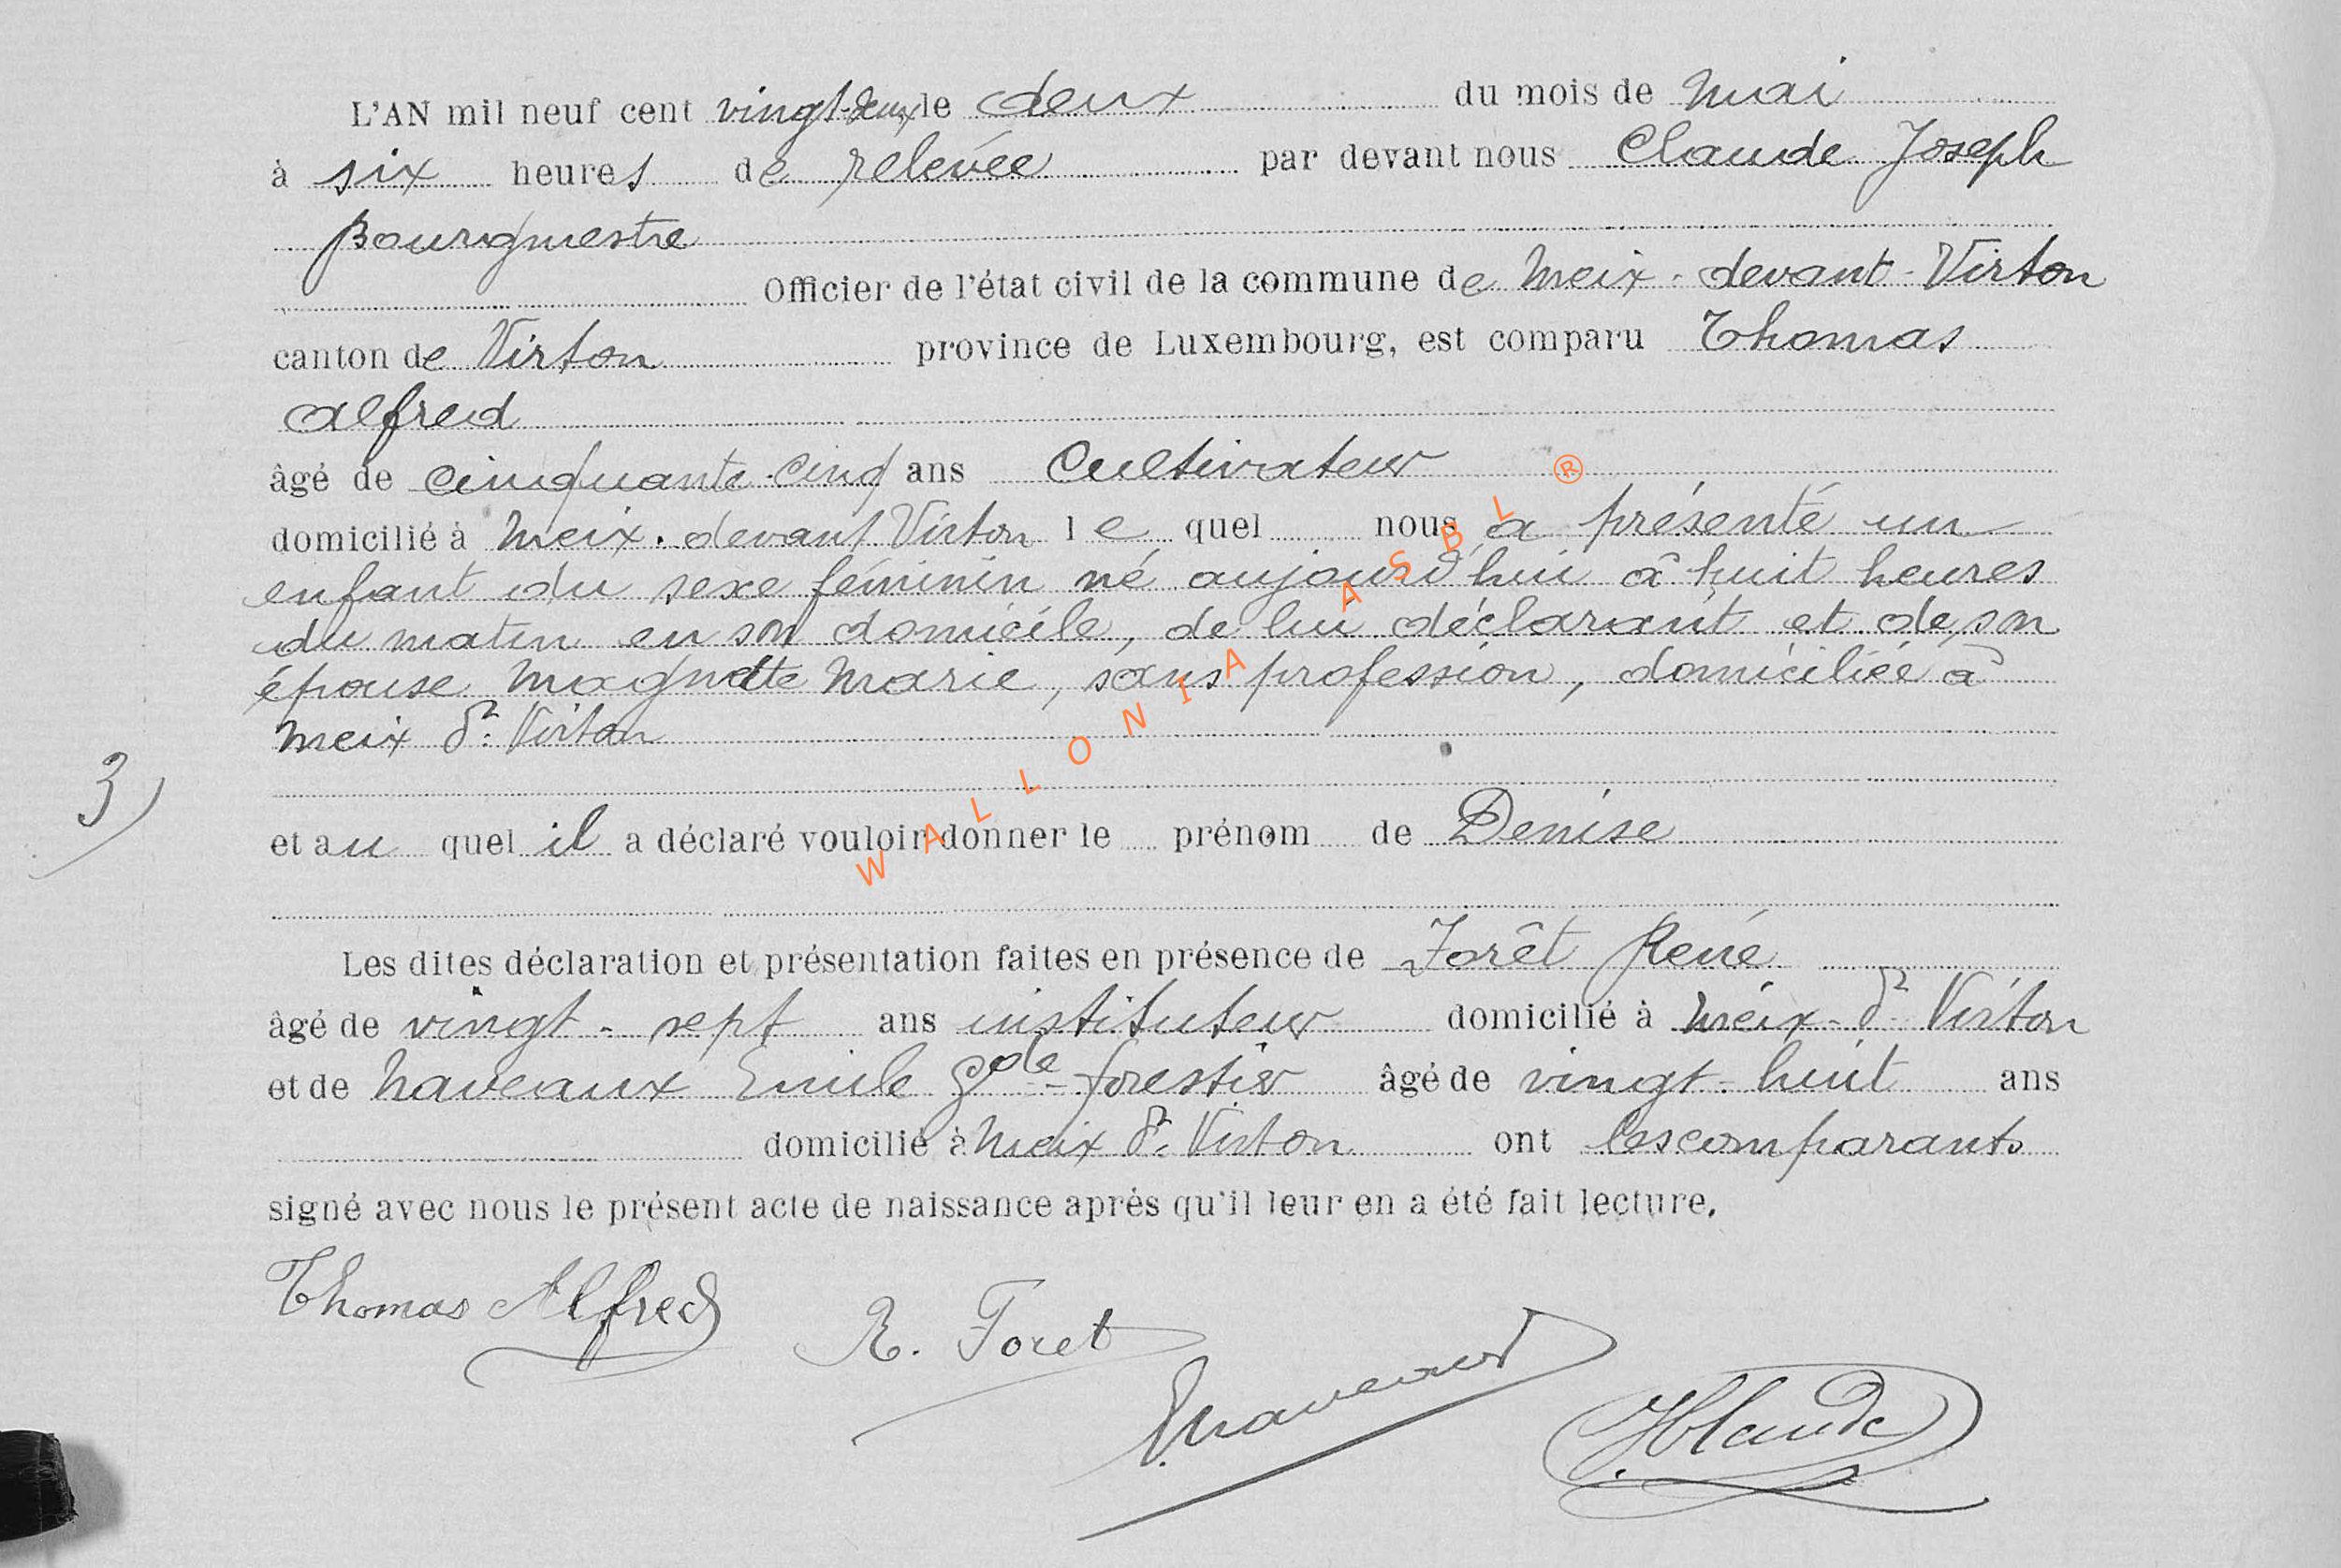 L'AN mil neuf cent vingt-deux le deux du mois de mai
à six heures de relevée par devant nous Claude Joseph
Bourgmestre
Officier de l'état civil de la commune de Meix-devant-Virton
canton de Virton province de Luxembourg, est comparu Thomas
Alfred
âgé de cinquante-cinq ans Cultivateur
domicilié à Meix-devant Virton lequel nous a présenté un
enfant du sexe féminin né aujourd'hui à huit heures
du matin en son domicile, de lui déclarant et de son
épouse Magnette Marie, sans profession, domiciliée à
Meix dt Virton
3)
et au quel il a déclaré vouloir donner le prénom de Denise
Les dites déclaration et présentation faites en présence de Forêt René
âgé de vingt-sept ans instituteur domicilié à Meix-dt Virton
et de Naveaux Emile gde-forestier âgé de vingt-huit ans
domicilié à Meix dt Virton ont les comparants
signé avec nous le présent acte de naissance après qu'il leur en a été fait lecture.
Thomas Alfred R. Foret
E. Naveaux J Claude
WALLONIA ASBL ®